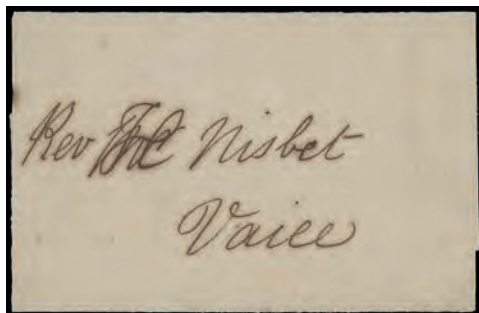 Rev Nisbet
Vaiee